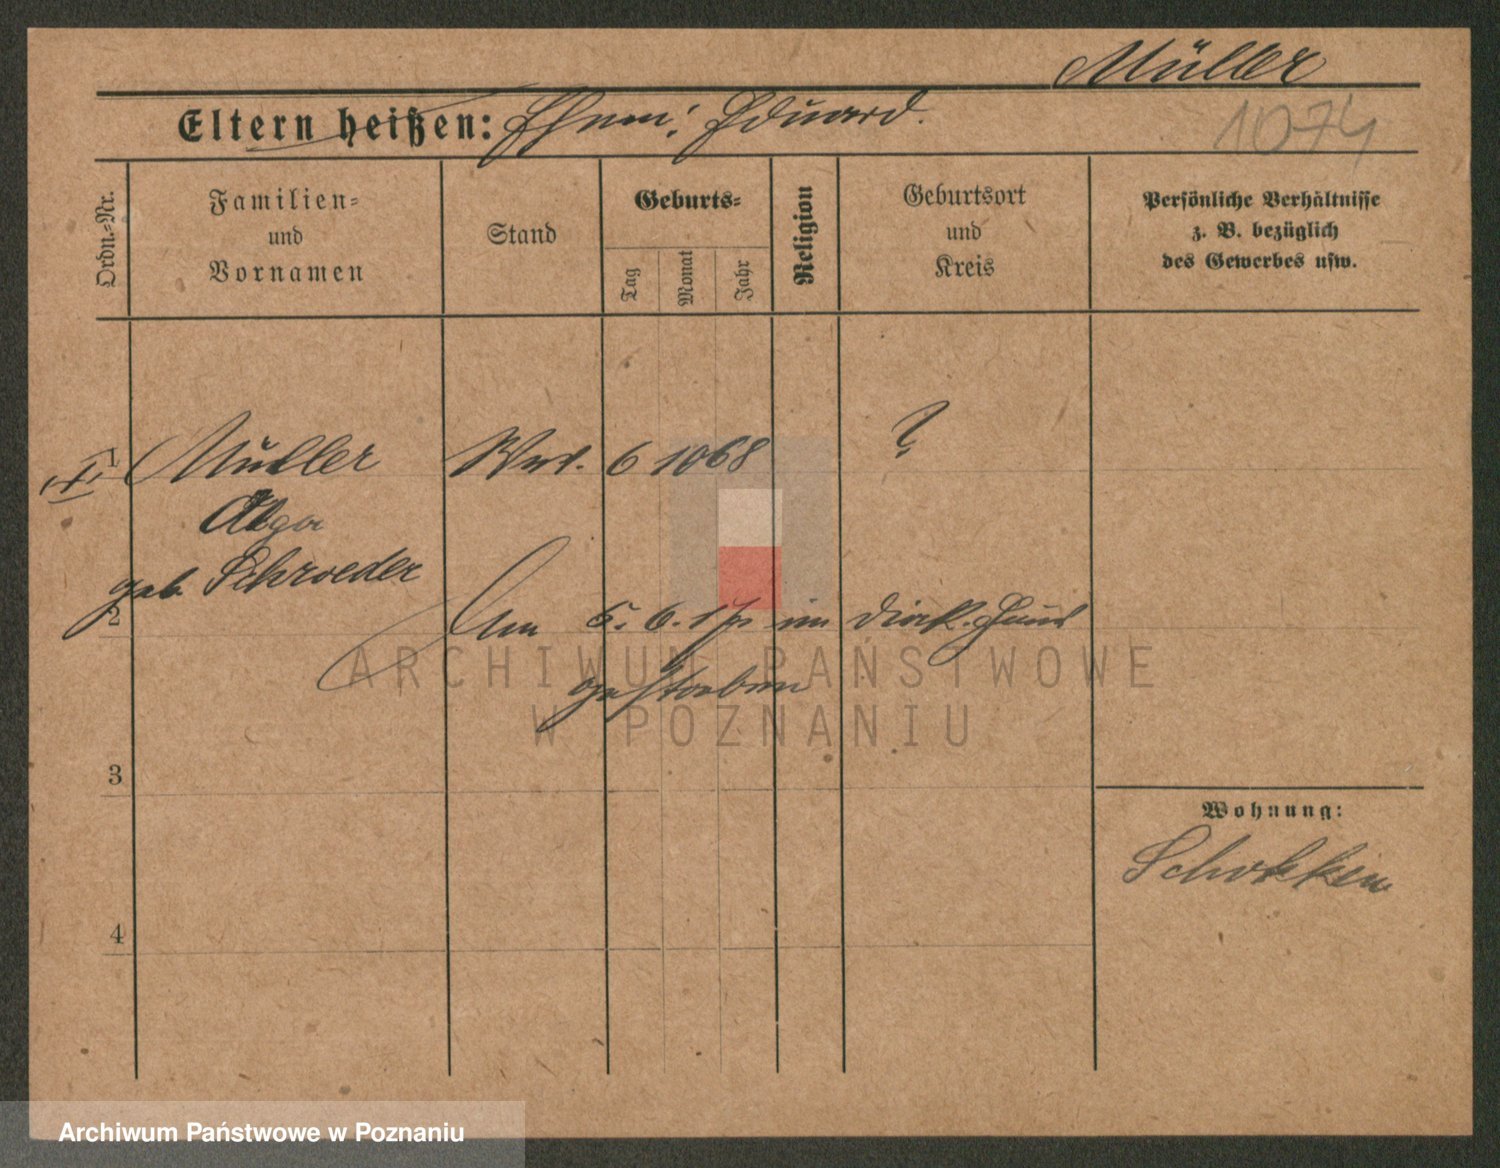 Müller
Eltern heißen: Ehem: Eduard.
1074
Ordn.-Nr.
Familien-
und
Vornamen
Stand
Geburts-
Tag
Monat
Jahr
Religion
Geburtsort
und
Kreis
Persönliche Verhältnisse
z. B. bezüglich
des Gewerbes usw.
1 Müller Wwe. 6 10 68 ?
geb. Schroeder
2 Am 5. 6. 17 im Diak. Haus
gestorben
ARCHIWUM PAŃSTWOWE
W POZNANIU
3
Wohnung:
Schokken
4
Archiwum Państwowe w Poznaniu